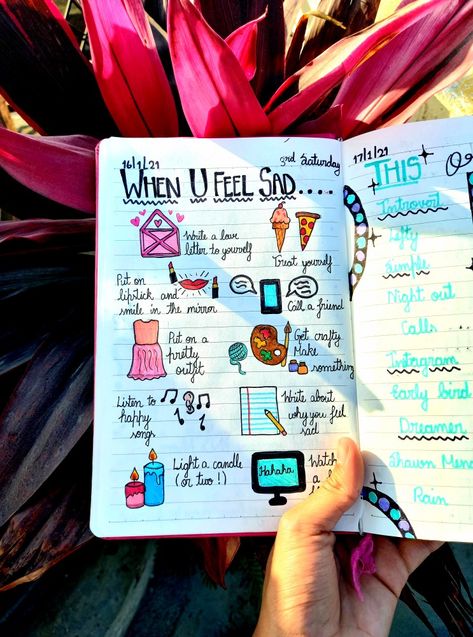 16/1/21
3rd Saturday
WHEN U FEEL SAD.....
Write a love
letter to yourself
Treat yourself
Put on
lipstick and
smile in the mirror
Call a friend
Put on a
pretty
outfit
Get crafty
Make
something
Listen to
happy
songs
Write about
why you feel
sad
Light a candle
(or two!)
Hahaha.
Watch
17/1/21
THIS
Introvert
Lefty
Simple
Night out
Calls
Instagram
Early bird
Dreamer
Shawn Men
Rain